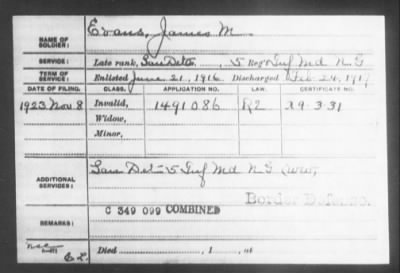 NAME OF SOLDIER: Evans, James M.
SERVICE: Late rank, San Det, 5 Reg't Inf Md N.G
TERM OF SERVICE: Enlisted June 21, 1916 Discharged Feb. 24, 1917
DATE OF FILING. CLASS. APPLICATION NO. LAW. CERTIFICATE NO.
1923 Nov 8 Invalid, 1491086 R2 X9-3-31
Widow,
Minor,
ADDITIONAL SERVICES: San Det 5 Inf Md N.G
Border Defense.
C 349 099 COMBINED
REMARKS:
Died , 1 , at